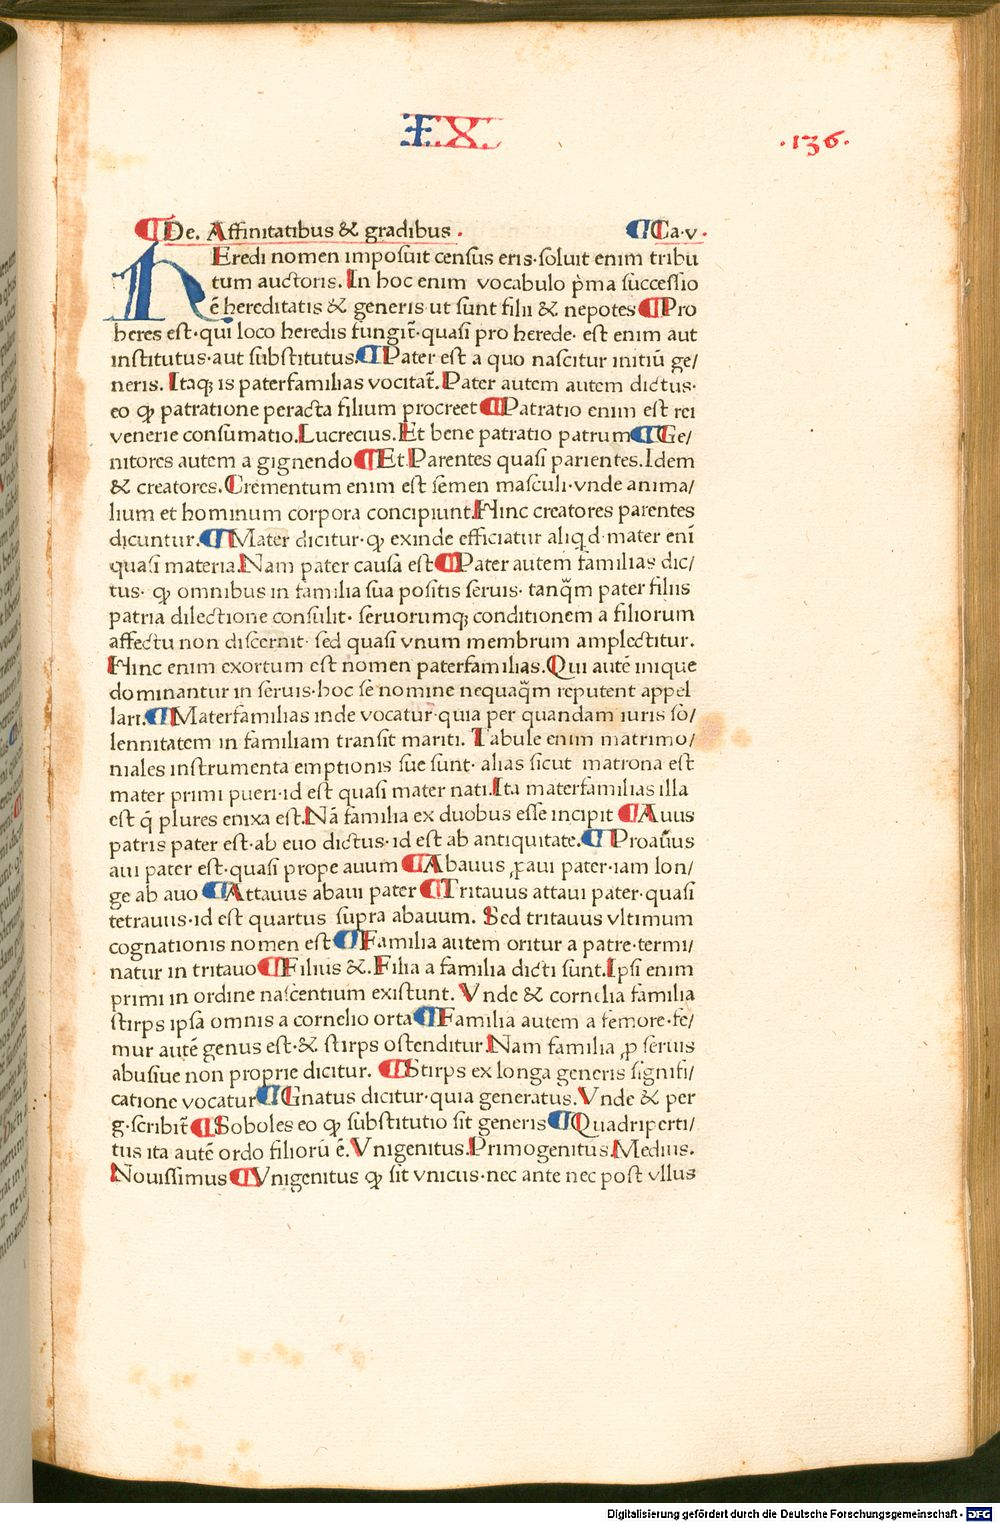 IX
.136.
¶De. Affinitatibus & gradibus . ¶Ca.v.
HEredi nomen imposuit census eris.soluit enim tribu
tum auctoris. In hoc enim vocabulo p̃ma successio
ē hereditatis & generis ut sunt filii & nepotes ¶Pro
heres est.qui loco heredis fungit̃.quasi pro herede. est enim aut
institutus.aut substitutus.¶Pater est a quo nascitur initiū ge/
neris. Itaq; is paterfamilias vocitat̃.Pater autem autem dictus.
eo ꝙ patratione peracta filium procreet ¶Patratio enim est rei
venerie consumatio.Lucrecius.Et bene patratio patrum¶Ge/
nitores autem a gignendo¶Et.Parentes quasi parientes.Idem
& creatores.Crementum enim est semen masculi.vnde anima/
lium et hominum corpora concipiunt.Hinc creatores parentes
dicuntur.¶Mater dicitur.ꝙ exinde efficiatur aliq̃d.mater enī
quasi materia.Nam pater causa est¶Pater autem familias dic/
tus. ꝙ omnibus in familia sua positis seruis. tanq̃m pater filiis
patria dilectione consulit. seruorumq; conditionem a filiorum
affectu non discernit. sed quasi vnum membrum amplectitur.
Hinc enim exortum est nomen paterfamilias.Qui autē inique
dominantur in seruis.hoc se nomine nequaq̃m reputent appel
lari.¶Materfamilias inde vocatur.quia per quandam iuris so/
lennitatem in familiam transit mariti. Tabule enim matrimo/
niales instrumenta emptionis sue sunt. alias sicut matrona est
mater primi pueri.id est quasi mater nati.Ita materfamilias illa
est q̄ plures enixa est.Nā familia ex duobus esse incipit ¶Auus
patris pater est.ab euo dictus.id est ab antiquitate.¶Proauus
aui pater est.quasi prope auum ¶Abauus ꝓaui pater.iam lon/
ge ab auo ¶Attauus abaui pater ¶Tritauus attaui pater.quasi
tetrauus.id est quartus supra abauum. Sed tritauus vltimum
cognationis nomen est¶Familia autem oritur a patre.termi/
natur in tritauo¶Filius &.Filia a familia dicti sunt.Ipsi enim
primi in ordine nascentium existunt. Vnde & cornelia familia
stirps ipsa omnis a cornelio orta¶Familia autem a femore.fe/
mur autē genus est.& stirps ostenditur.Nam familia ꝓ seruis
abusiue non proprie dicitur. ¶Stirps ex longa generis signifi/
catione vocatur¶Gnatus dicitur.quia generatus.Vnde & per
g.scribit̃¶Soboles eo ꝙ substitutio sit generis¶Quadriperti/
tus ita autē ordo filiorū ē.Vnigenitus.Primogenitus.Medius.
Nouissimus ¶Vnigenitus ꝙ sit vnicus.nec ante nec post vllus
Digitalisierung gefördert durch die Deutsche Forschungsgemeinschaft - DFG